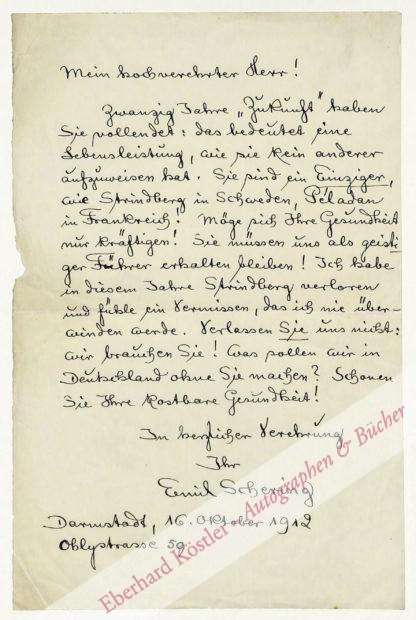 Mein hochverehrter Herr!
Zwanzig Jahre „Zukunft" haben
Sie vollendet: das bedeutet eine
Lebensleistung, wie sie kein anderer
aufzuweisen hat. Sie sind ein Einziger,
wie Strindberg in Schweden, Péladan
in Frankreich! Möge sich Ihre Gesundheit
nur kräftigen! Sie müssen uns als geisti-
ger Führer erhalten bleiben! Ich habe
in diesem Jahre Strindberg verloren
und fühle ein Vermissen, das ich nie über-
winden werde. Verlassen Sie uns nicht:
wir brauchen Sie! Was sollen wir in
Deutschland ohne Sie machen? Schonen
Sie Ihre kostbare Gesundheit!
In herzlicher Verehrung
Ihr
Emil Schering
Darmstadt, 16. Oktober 1912
Ohlystrasse 59
Eberhard Köstler - Autographen & Bücher